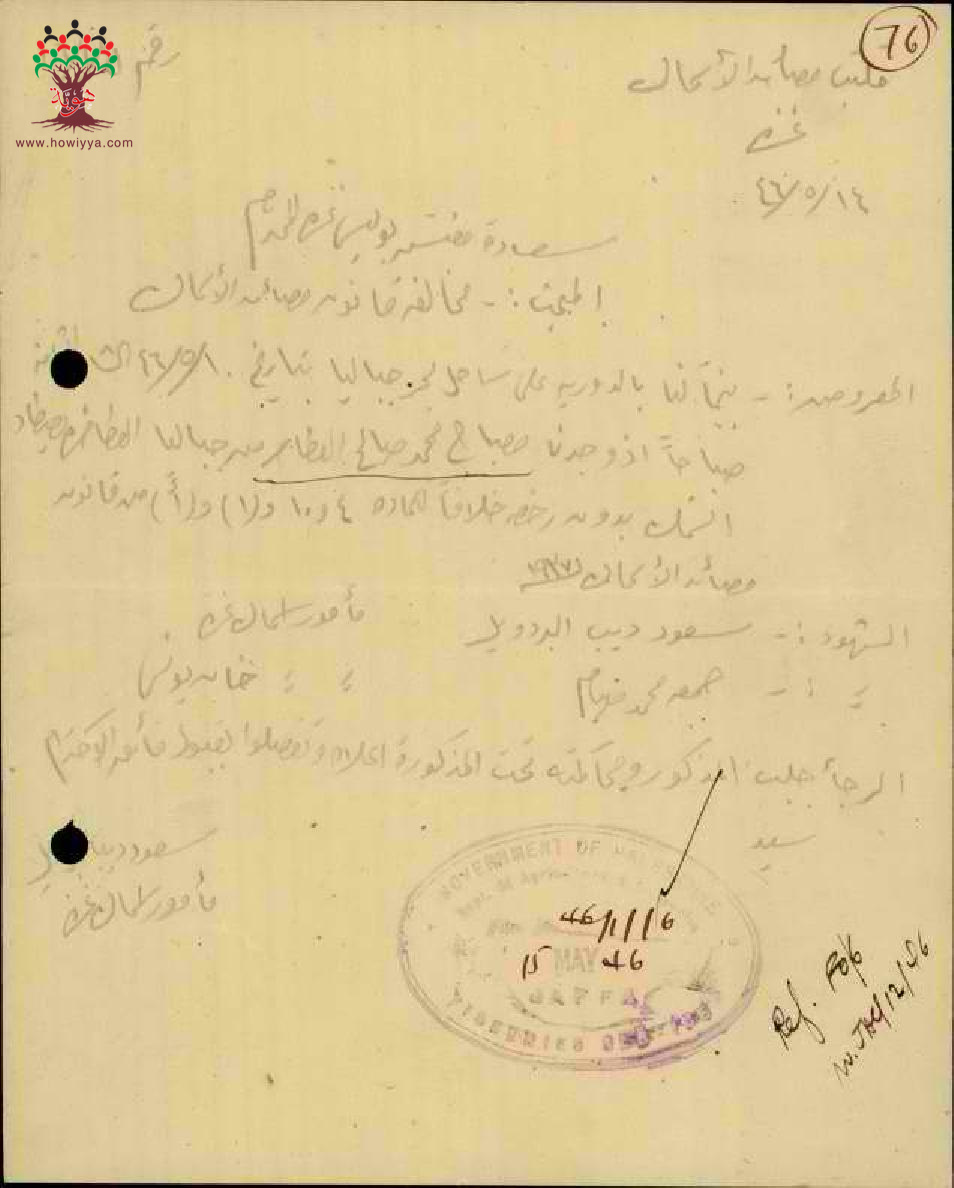 76
رقم
هوية
www.howiyya.com
مكتب مصائد الأسماك
غزة
١٤/٥/٤٦
سعادة مفتش بوليس غزة المحترم
المبحث :- مخالفة قانون مصائد الأسماك
المعروض :- بينما كنا بالدورية على ساحل بحر جباليا بتاريخ ١٠/٥/٤٦
صباحاً اذ وجدنا مصباح محمد صالح من جباليا يصطاد
السمك بدون رخصة خلافاً للمادة ٤ و١٠ و(١) و(أ) من قانون
مصائد الأسماك
الشهود :- سعود ديب البردويل مأمور اسماك غزة
〃 :- جمعه محمد 〃 〃 خان يونس
الرجاء جلب المذكور ومحاكمته تحت المذكورة اعلاه وتفضلوا بقبول فائق الاحترام
سيد
سعود ديب
مأمور اسماك غزة
GOVERNMENT OF PALESTINE
Dept. of Agriculture &
46/1/16
15 MAY 46
JAFFA
FISHERIES
Ref.